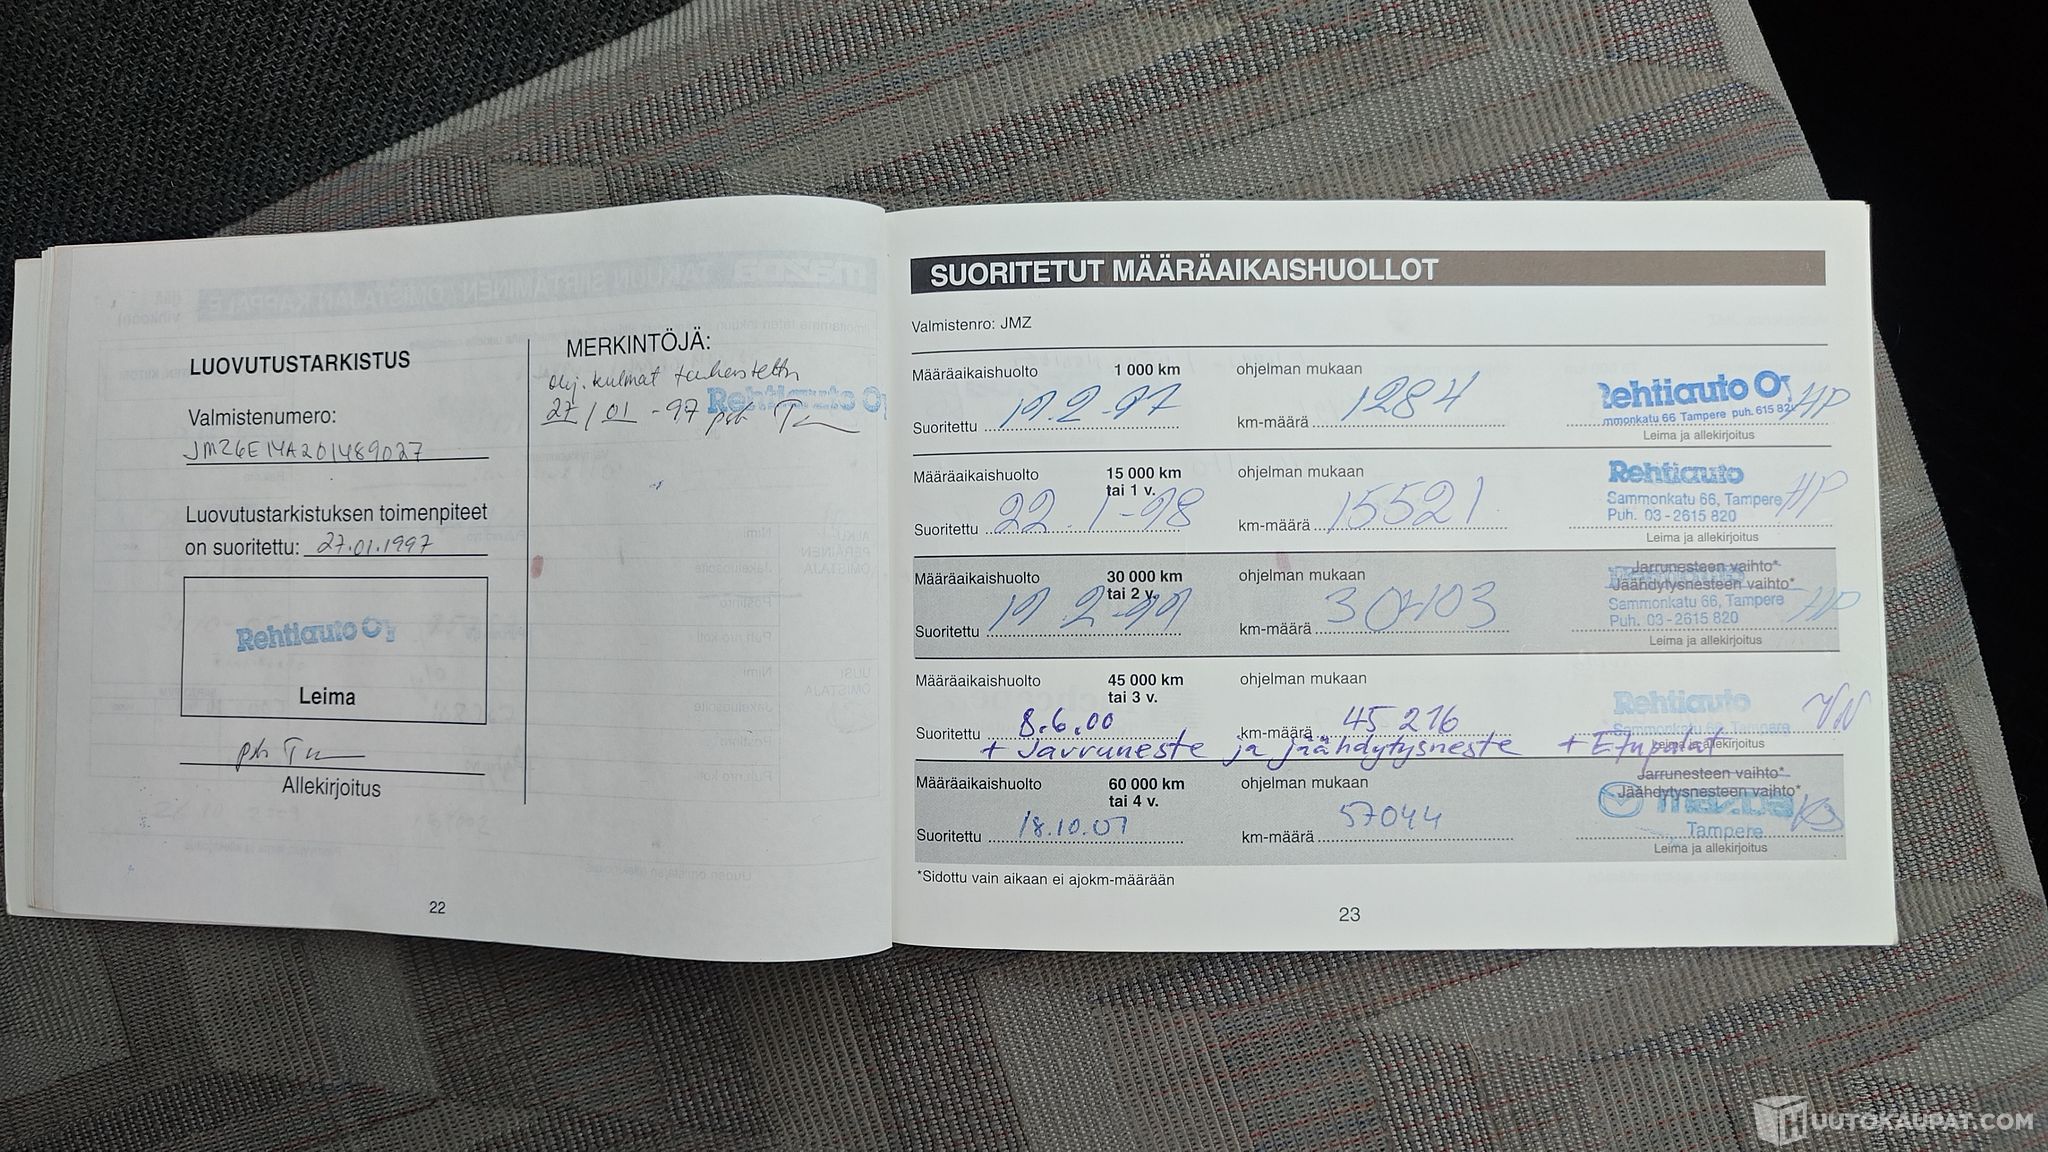 LUOVUTUSTARKISTUS
Valmistenumero:
JMZGE14A201489027
Luovutustarkistuksen toimenpiteet
on suoritettu: 27.01.1997
Rehtiauto Oy
Leima
Allekirjoitus
22
MERKINTÖJÄ:
ohj. kulmat tarkastettu
27/01-97
Rehtiauto Oy
SUORITETUT MÄÄRÄAIKAISHUOLLOT
Valmistenro: JMZ
Määräaikaishuolto 1 000 km ohjelman mukaan
Suoritettu 19.2-97 km-määrä 1284
Rehtiauto Oy
mmonkatu 66 Tampere puh. 615 820
HP
Leima ja allekirjoitus
Määräaikaishuolto 15 000 km ohjelman mukaan
tai 1 v.
Suoritettu 22.1-98 km-määrä 15521
Rehtiauto
Sammonkatu 66, Tampere HP
Puh. 03-2615 820
Leima ja allekirjoitus
Määräaikaishuolto 30 000 km ohjelman mukaan
tai 2 v.
Suoritettu 19.2-99 km-määrä 30403
Jarrunesteen vaihto*
Jäähdytysnesteen vaihto*
Sammonkatu 66, Tampere HP
Puh. 03-2615 820
Leima ja allekirjoitus
Määräaikaishuolto 45 000 km ohjelman mukaan
tai 3 v.
Suoritettu 8.6.00 km-määrä 45 216
Rehtiauto
Sammonkatu 66, Tampere
Leima ja allekirjoitus
+ Jarruneste ja jäähdytysneste + Etupalat
Määräaikaishuolto 60 000 km ohjelman mukaan
tai 4 v.
Suoritettu 18.10.01 km-määrä 57044
Jarrunesteen vaihto*
Jäähdytysnesteen vaihto*
mazda
Tampere
Leima ja allekirjoitus
*Sidottu vain aikaan ei ajokm-määrään
23
HUUTOKAUPAT.COM